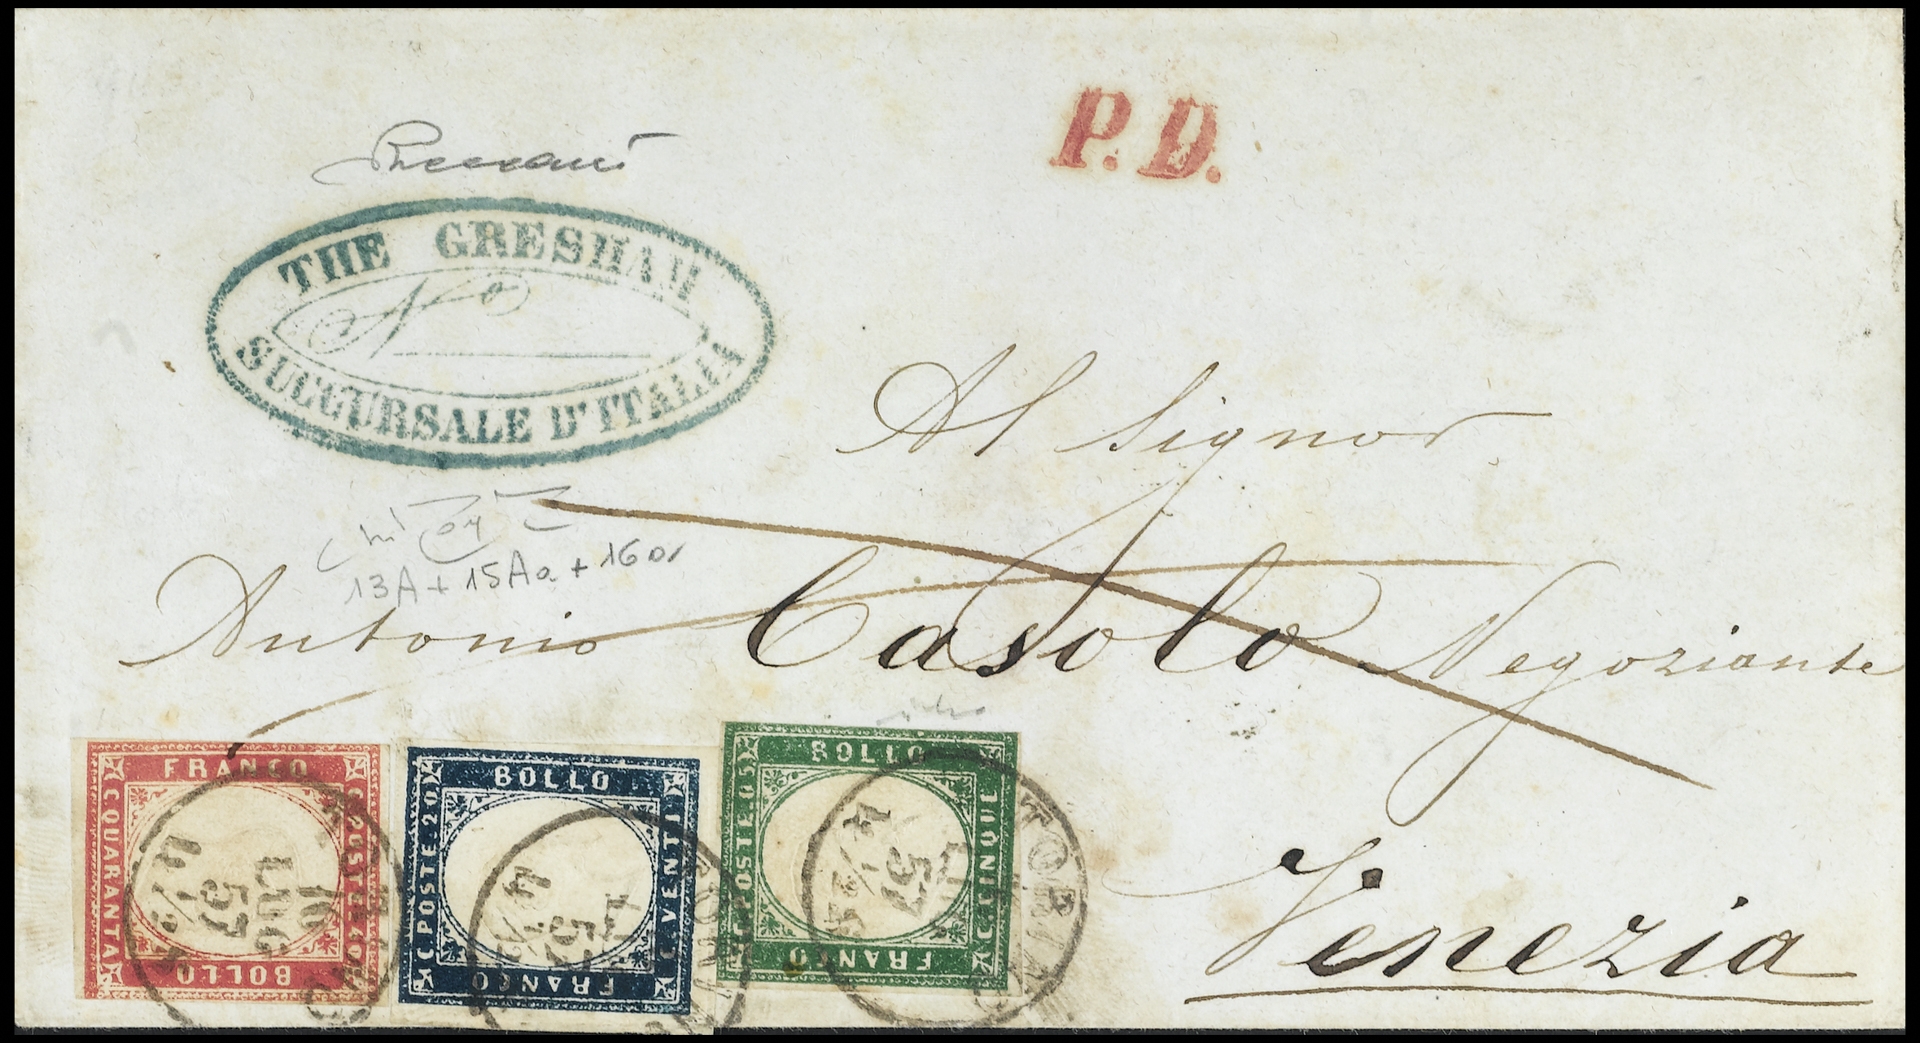 P. D.
THE GRESHAM
No
SUCCURSALE D'ITALIA
Al Signor
13A + 15Aa + 16
Antonio Casolo Negoziante
Venezia
FRANCO
C. QUARANTA
C. POSTE. 40
BOLLO
BOLLO
C. POSTE. 20
C. VENTI
FRANCO
BOLLO
C. POSTE. 05
C. CINQUE
FRANCO
TORINO
10
LUG
57
TORINO
LUG
57
TORINO
LUG
57